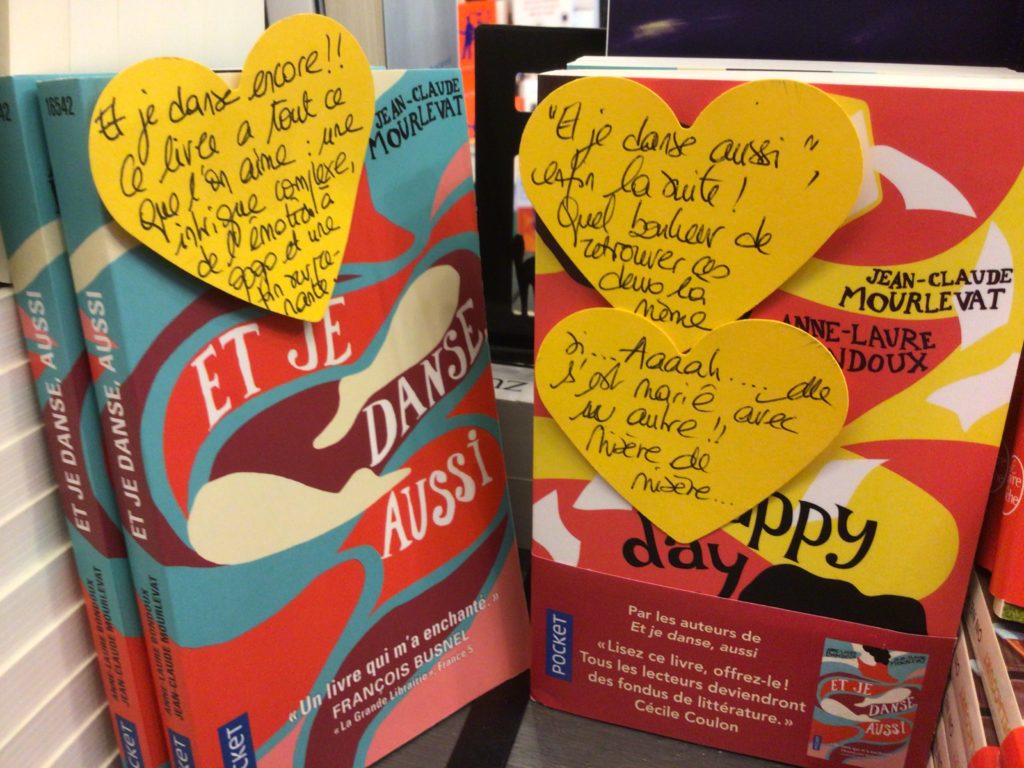 16542
ET JE DANSE, AUSSI
ANNE-LAURE BONDOUX
JEAN-CLAUDE MOURLEVAT
POCKET
16542
ET JE DANSE, AUSSI
ANNE-LAURE BONDOUX
JEAN-CLAUDE MOURLEVAT
POCKET
Et je danse encore!!
Ce livre a tout ce
que l'on aime : une
intrigue complexe,
de l'émotion à
gogo et une
fin surpre-
nante
JEAN-CLAUDE
MOURLEVAT
ET JE
DANSE,
AUSSI
«Un livre qui m'a enchanté.»
FRANÇOIS BUSNEL
«La Grande Librairie», France 5
POCKET
"Et je danse aussi"
enfin la suite!
Quel bonheur de
retrouver ces
deux là
même
si.... Aaaah..... elle
s'est marié avec
un autre!!
Misère de
misère...
JEAN-CLAUDE
MOURLEVAT
ANNE-LAURE
NDOUX
appy
day
POCKET
Par les auteurs de
Et je danse, aussi
«Lisez ce livre, offrez-le!
Tous les lecteurs deviendront
des fondus de littérature.»
Cécile Coulon
ET JE
DANSE
AUSSI